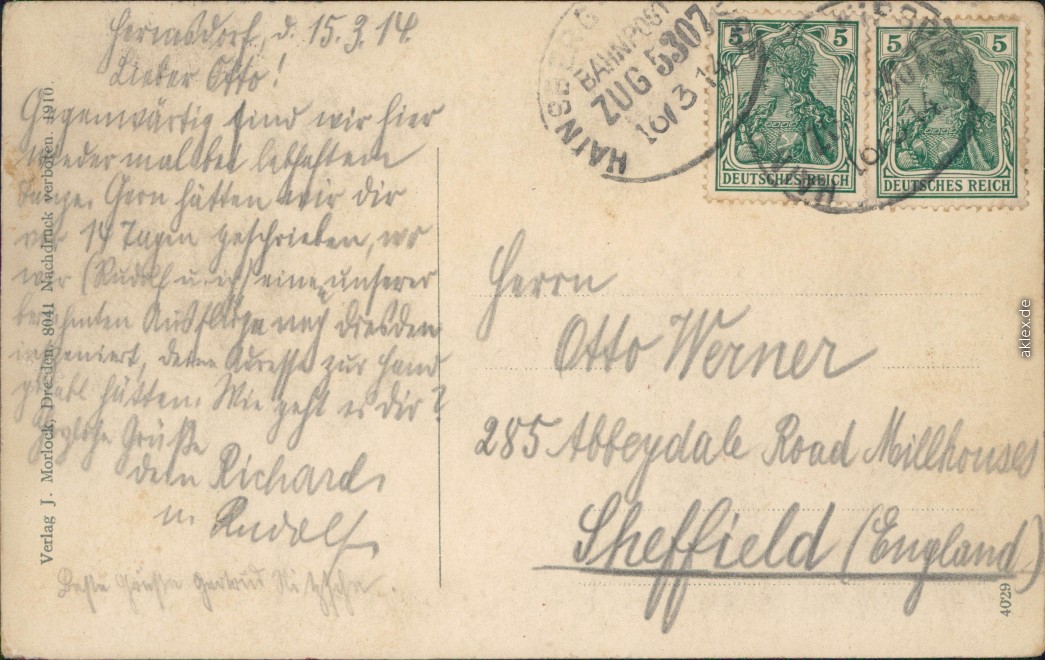 Hermsdorf, d. 15.3.14.
Lieber Otto!
Gegenwärtig sind wir hier
wieder mal bei lebhaftem
Gern hätten wir dir
vor 14 Tagen geschrieben, wo
wir (Rudolf u. ich) eine unserer
berühmten Ausflüge nach Dresden
deine Adresse zur Hand
gehabt hätten. Wie geht es dir?
Herzliche Grüße
dein Richard
u. Rudolf
Beste Grüße Gertrud Nitzsche.
Verlag J. Morlock, Dresden. 8041 Nachdruck verboten. 1910.
HAINSBERG
BAHNPOST
ZUG 5307
16/3 14
5 5
DEUTSCHES REICH
5 5
DEUTSCHES REICH
Herrn
Otto Werner
285 Abbeydale Road Millhouses
Sheffield (England.)
4029
aklex.de